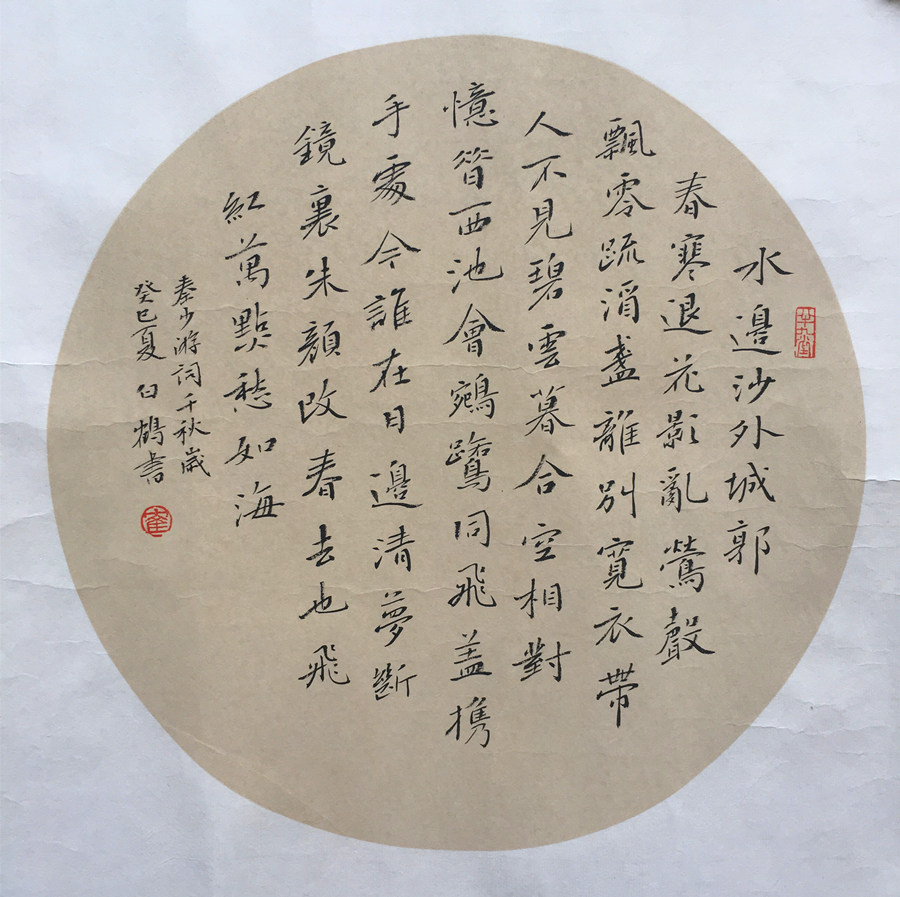 水邊沙外城郭
春寒退花影亂鶯聲
飄零疏酒盞離別寬衣帶
人不見碧雲暮合空相對
憶昔西池會鵷鷺同飛盖携
手處今誰在日邊清夢斷
鏡裏朱顏改春去也飛
紅萬點愁如海
秦少游詞千秋歲
癸巳夏白鶴書